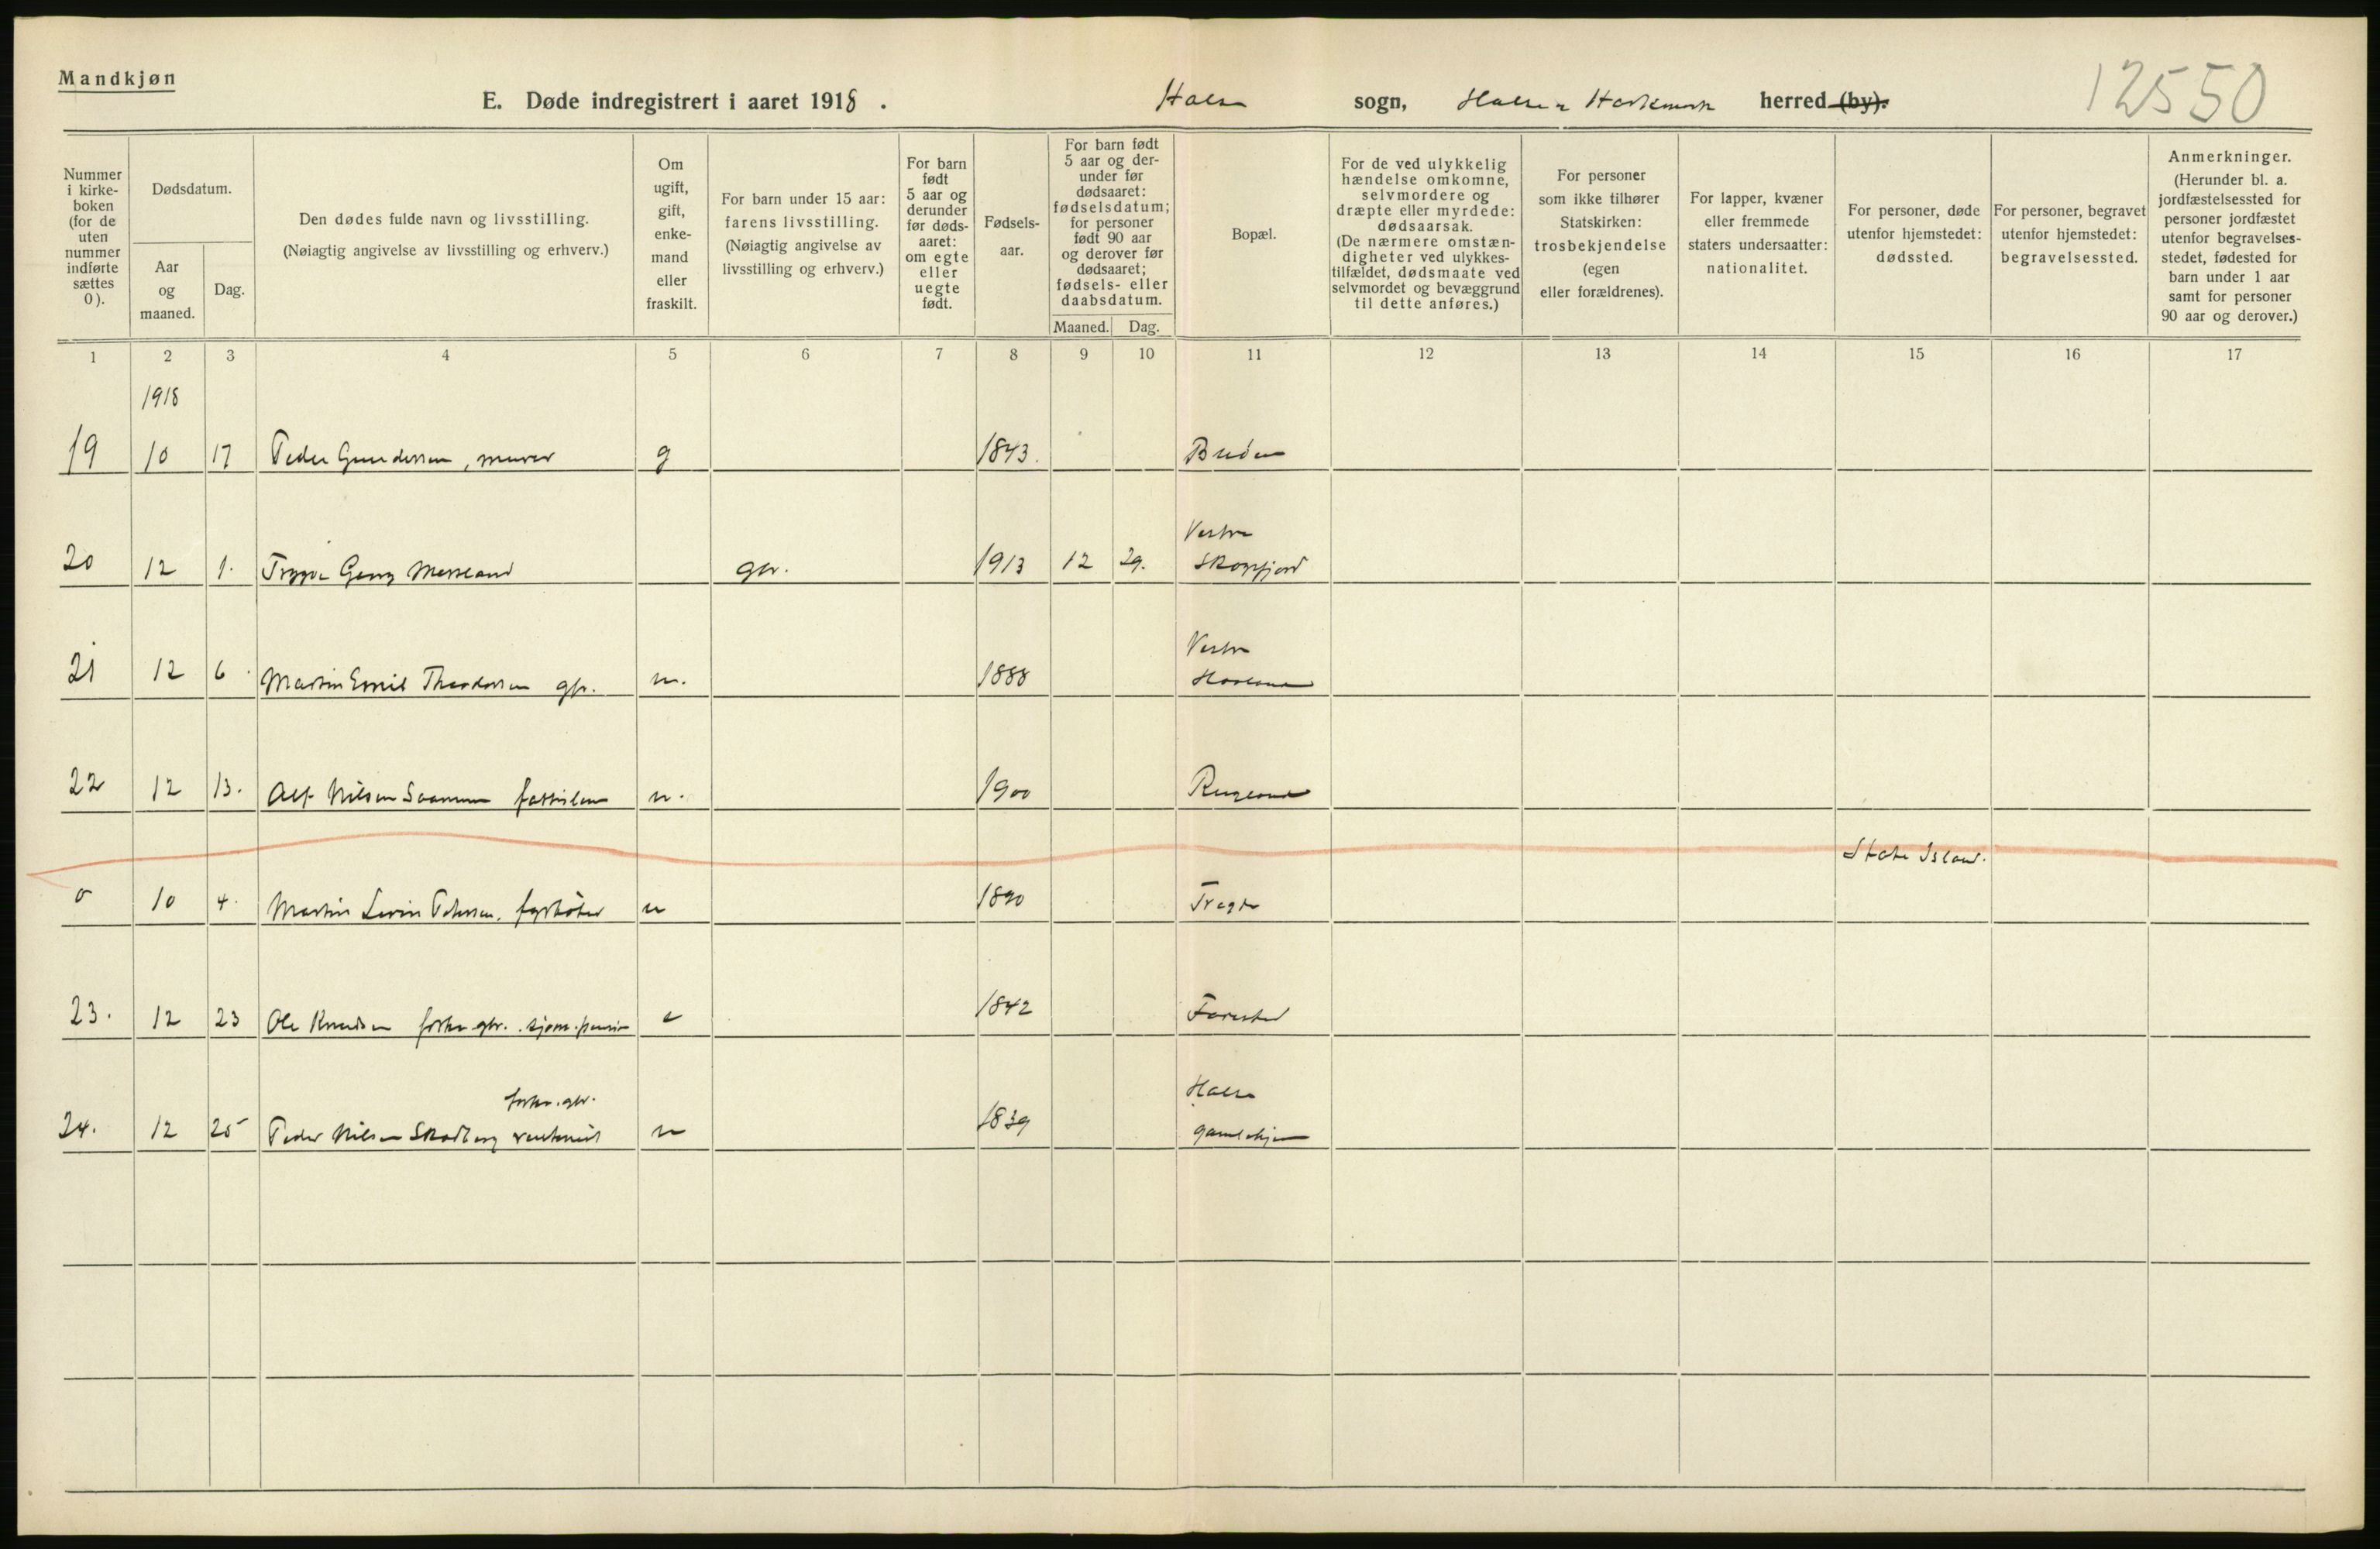 Mandkjøn
E. Døde indregistrert i aaret 1918. Halse sogn, Halse & Harkmark herred (by).
12550
Nummer i kirkeboken (for de uten nummer indførte sættes 0).
Dødsdatum.
Aar og maaned.
Dag.
Den dødes fulde navn og livsstilling.
(Nøiagtig angivelse av livsstilling og erhverv.)
Om ugift, gift, enkemand eller fraskilt.
For barn under 15 aar: farens livsstilling.
(Nøiagtig angivelse av livsstilling og erhverv.)
For barn født 5 aar og derunder før dødsaaret: om egte eller uegte født.
Fødselsaar.
For barn født 5 aar og derunder før dødsaaret: fødselsdatum; for personer født 90 aar og derover før dødsaaret; fødsels- eller daabsdatum.
Maaned. Dag.
Bopæl.
For de ved ulykkelig hændelse omkomne, selvmordere og dræpte eller myrdede: dødsaarsak.
(De nærmere omstændigheter ved ulykkestilfældet, dødsmaate ved selvmordet og bevæggrund til dette anføres.)
For personer som ikke tilhører Statskirken: trosbekjendelse (egen eller forældrenes).
For lapper, kvæner eller fremmede staters undersaatter: nationalitet.
For personer, døde utenfor hjemstedet: dødssted.
For personer, begravet utenfor hjemstedet: begravelsessted.
Anmerkninger.
(Herunder bl. a. jordfæstelsessted for personer jordfæstet utenfor begravelsesstedet, fødested for barn under 1 aar samt for personer 90 aar og derover.)
1 2 3 4 5 6 7 8 9 10 11 12 13 14 15 16 17
1918
19 10 17 Peder Gundersen, murer g 1843.
Vestre
20 12 1. Trygve Georg gbr. 1913 12 29. Skogsfjord
Vestre
21 12 6 Martin Emil Theodorsen gbr. u. 1888
22 12 13. Alf Nilsen u. 1900
State Island.
0 10 4. Martin fyrbøter u 1890 Tregde
23. 12 23 Ole Knudsen forhv. gbr. e 1842 Farestad
forhv. gbr. Halse
24. 12 25 Peder Nilsen u 1839 gamlehjem